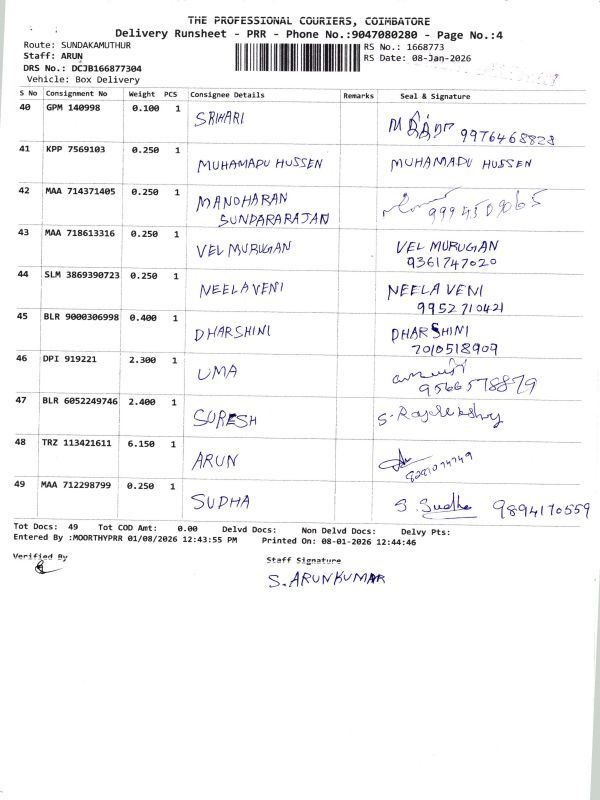 THE PROFESSIONAL COURIERS, COIMBATORE
Delivery Runsheet - PRR - Phone No.:9047080280 - Page No.:4
Route: SUNDAKAMUTHUR
RS No.: 1668773
Staff: ARUN
RS Date: 08-Jan-2026
DRS No.: DCJB166877304
Vehicle: Box Delivery
S No Consignment No Weight PCS Consignee Details Remarks Seal & Signature
40 GPM 140998 0.100 1 SRIHARI 9976468828
41 KPP 7569103 0.250 1 MUHAMADU HUSSEN MUHAMADU HUSSEN
42 MAA 714371405 0.250 1 MANOHARAN
SUNDARARAJAN 9994509065
43 MAA 718613316 0.250 1 VEL MURUGAN VEL MURUGAN
9361747020
44 SLM 3869390723 0.250 1 NEELAVENI NEELAVENI
9952710421
45 BLR 9000306998 0.400 1 DHARSHINI DHARSHINI
7010518909
46 DPI 919221 2.300 1 UMA
9566578879
47 BLR 6052249746 2.400 1 SURESH
48 TRZ 113421611 6.150 1 ARUN
49 MAA 712298799 0.250 1 SUDHA S. Sudha 9894170559
Tot Docs: 49 Tot COD Amt: 0.00 Delvd Docs: Non Delvd Docs: Delvy Pts:
Entered By :MOORTHYPRR 01/08/2026 12:43:55 PM Printed On: 08-01-2026 12:44:46
Verified By
Staff Signature
S. ARUNKUMAR